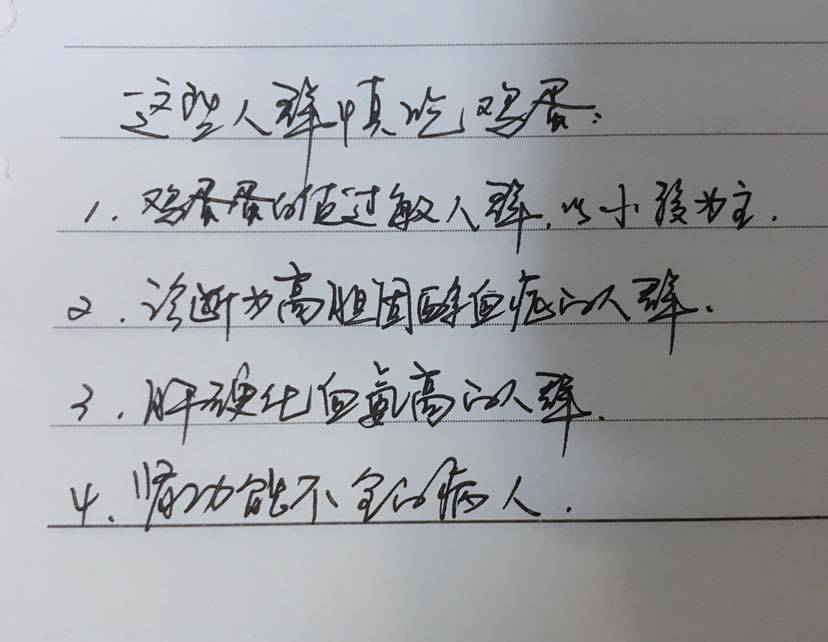 这些人群慎吃鸡蛋:
1.鸡蛋蛋白值过敏人群,以小孩为主.
2.诊断为高胆固醇血症的人群.
3.肝硬化血氨高的人群.
4.肾功能不全的病人.